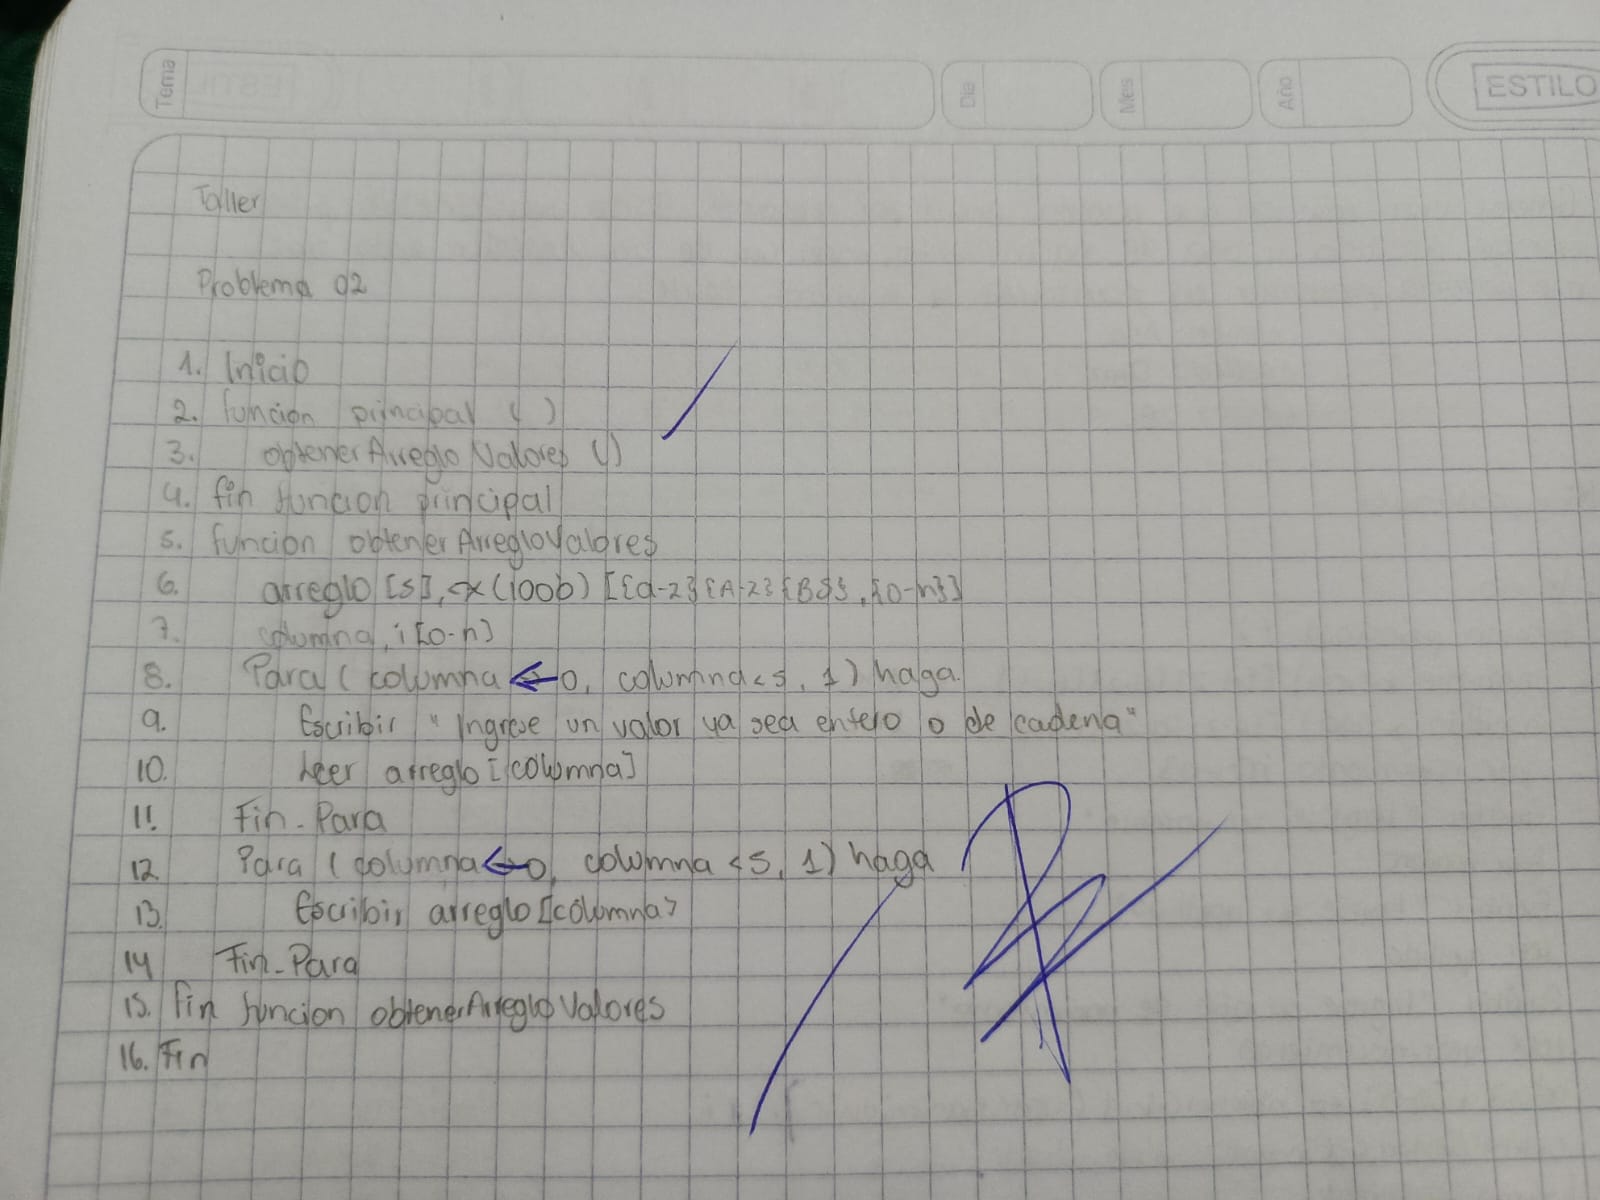 Tema
Dia
Mes
Año
ESTILO
Taller
Problema 02
1. Inicio
2. funcion principal ( )
3. obtenerArregloValores ()
4. fin funcion principal
5. funcion obtenerArregloValores
6. arreglo [5], (100b) [{a-z}{A-Z}{B&}, {0-n}]
7. columna, i [0-n]
8. Para ( columna ← 0, columna < 5, 1) haga
9. Escribir "Ingrese un valor ya sea entero o de cadena"
10. Leer arreglo [columna]
11. Fin-Para
12 Para (columna ← 0, columna < 5, 1) haga
13. Escribir arreglo [columna]
14 Fin-Para
15. fin funcion obtenerArregloValores
16. Fin